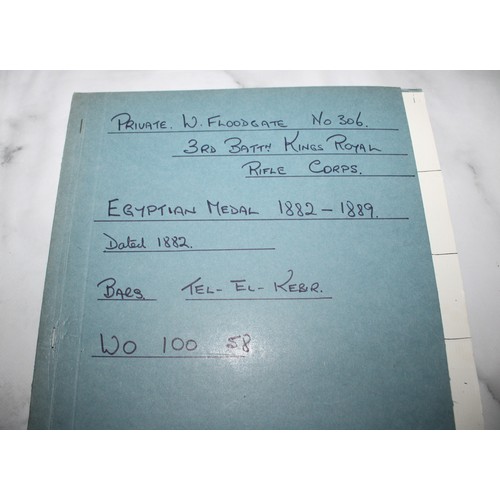 PRIVATE. W. FLOODGATE No 306.
3RD BATTN KINGS ROYAL
RIFLE CORPS.
EGYPTIAN MEDAL 1882 - 1889.
Dated 1882.
BARS. TEL - EL - KEBR.
WO 100 58